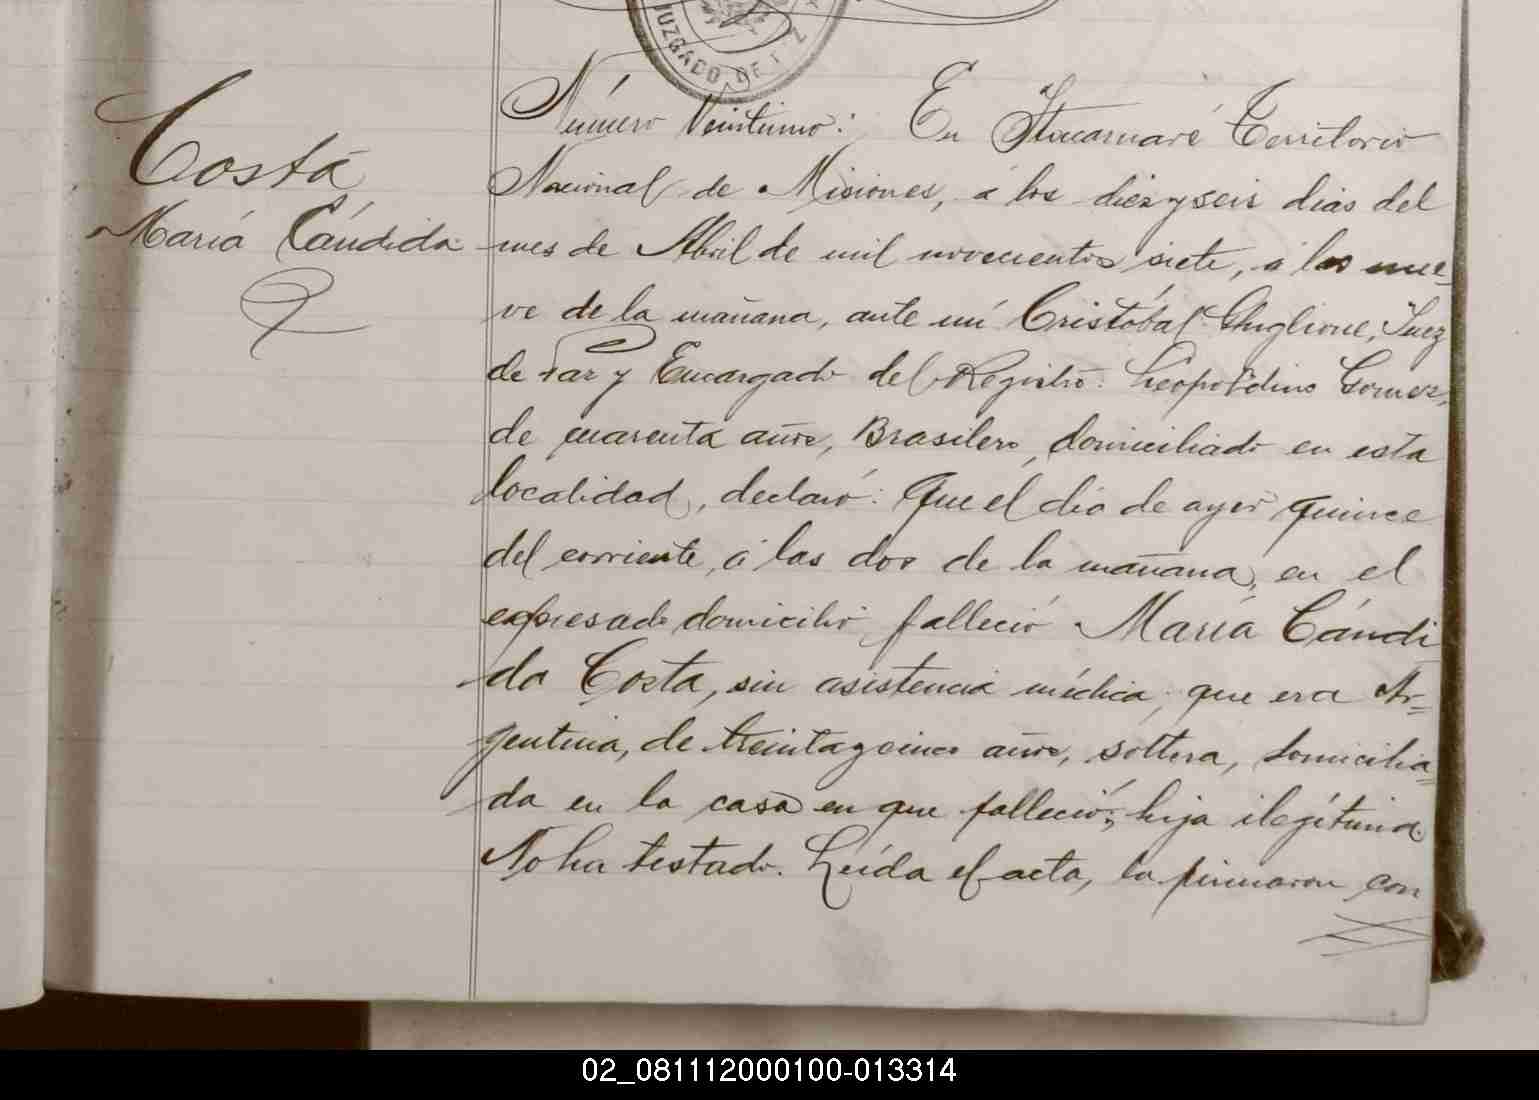 JUZGADO DE
Costa
María Cándida
Número Veintiuno: En Itacaruaré Territorio
Nacional de Misiones, á los diez y seis dias del
mes de Abril de mil novecientos siete, á las nue-
ve de la mañana, ante mí Cristóbal Ghiglione, Juez
de Paz y Encargado del Registro. Leopoldino Gomez,
de cuarenta años, Brasilero, domiciliado en esta
localidad, declaró: Que el dia de ayer quince
del corriente, á las dos de la mañana, en el
expresado domicilio falleció María Cándi
da Costa, sin asistencia médica, que era Ar=
gentina, de treinta y cinco años, soltera, domicilia=
da en la casa en que falleció; hija ilegítima.
No ha testado. Leída el acta, la firmaron con
02_081112000100-013314